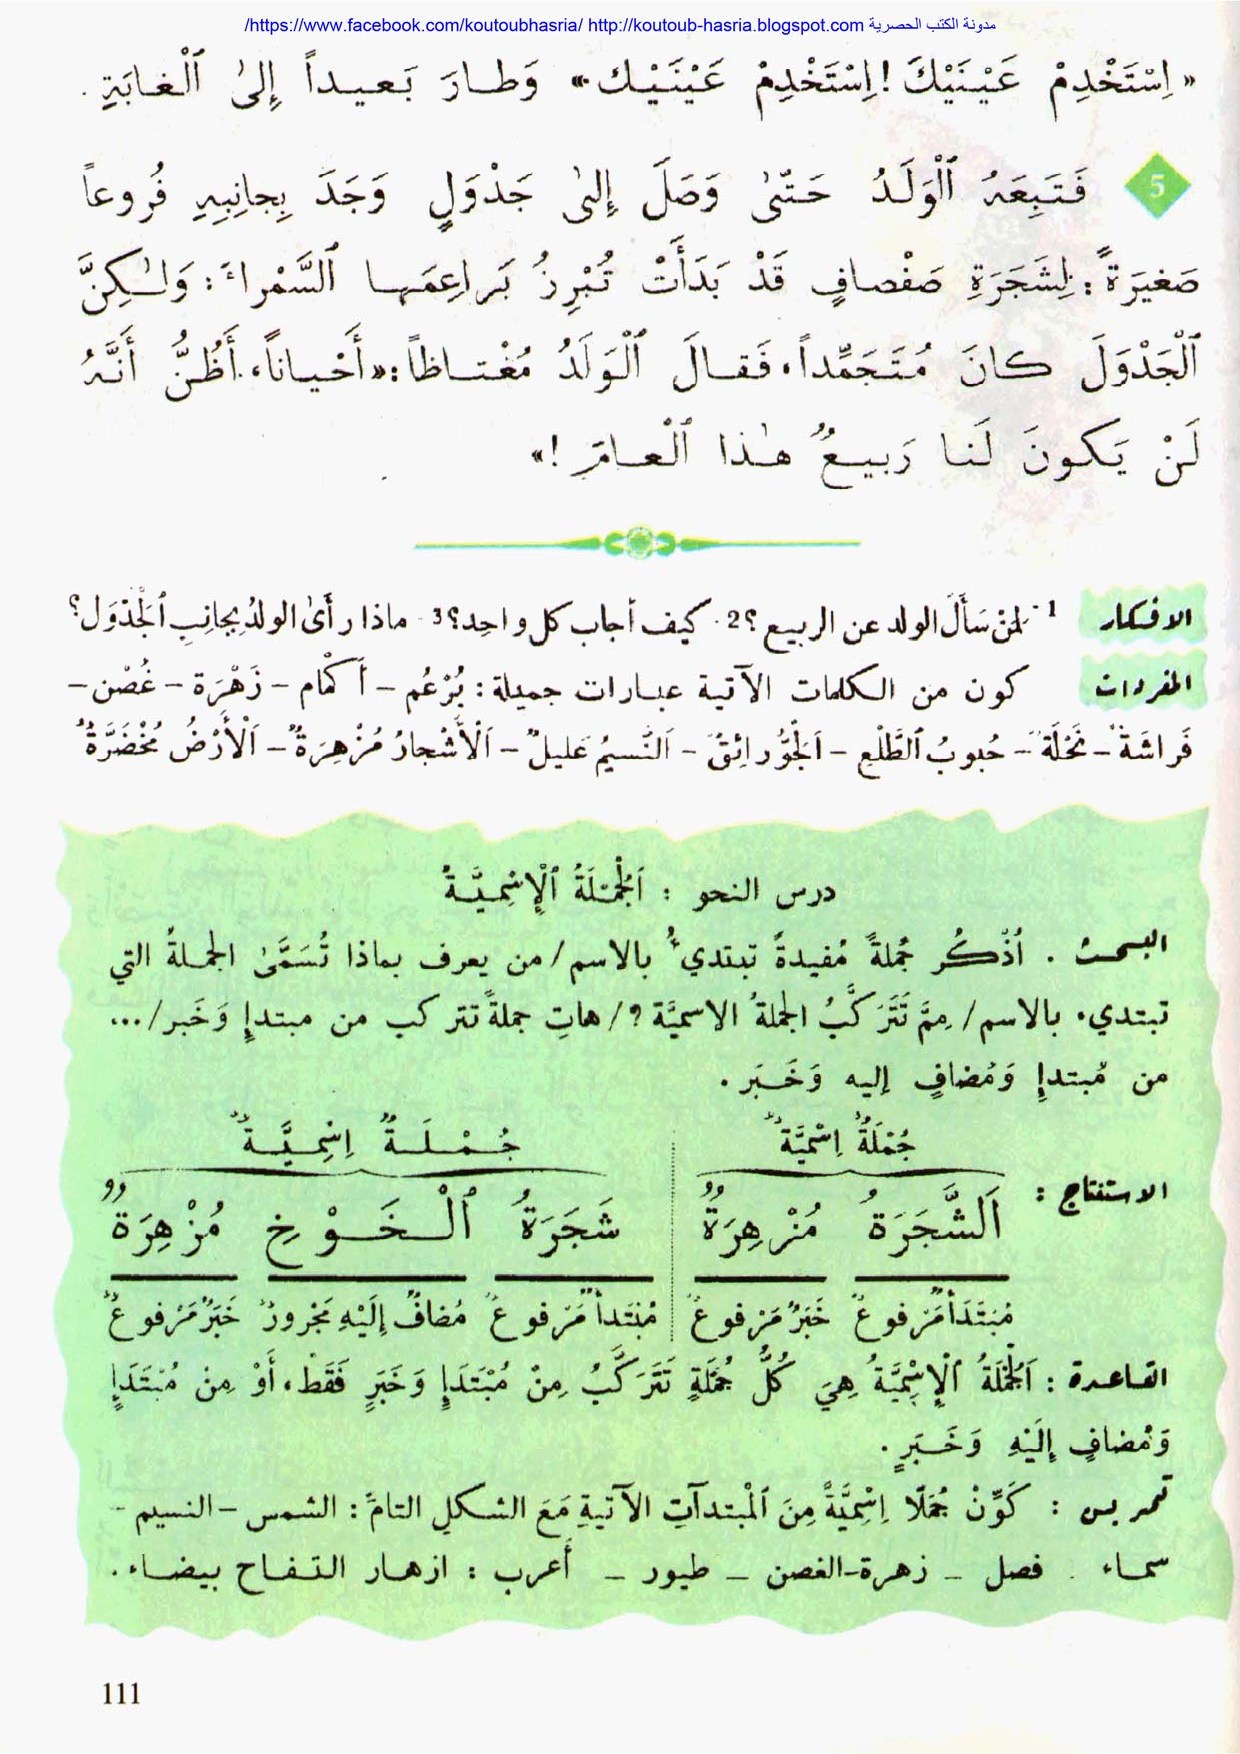 مدونة الكتب الحصرية https://www.facebook.com/koutoubhasria/ http://koutoub-hasria.blogspot.com/
« اِسْتَخْدِمْ عَيْنَيْكَ ! اِسْتَخْدِمْ عَيْنَيْك » وَطارَ بَعيداً إِلىٰ ٱلْغابَةِ .
5 فَتَبِعَهُ ٱلْوَلَدُ حَتّىٰ وَصَلَ إِلىٰ جَدْوَلٍ وَجَدَ بِجانِبِهِ فُروعاً
صَغيرَةً : لِشَجَرَةِ صَفْصافٍ قَدْ بَدَأَتْ تُبْرِزُ بَراعِمَها ٱلسَّمْراءَ : وَلٰكِنَّ
ٱلْجَدْوَلَ كانَ مُتَجَمِّداً، فَقالَ ٱلْوَلَدُ مُغْتاظاً : « أَحْياناً، أَظُنُّ أَنَّهُ
لَنْ يَكونَ لَنا رَبيعٌ هٰذا ٱلْعامَ ! »
الافكار 1- لِمَنْ سَأَلَ الولد عن الربيع ؟ 2- كيف أجاب كل واحِد؟ 3- ماذا رأىٰ الولدُ بِجانِبِ ٱلْجَدْوَل؟
المفردات كون من الكلمات الآتية عبارات جميلة : بُرْعُم – أَكْمام – زَهْرَة – غُصْن –
فَراشَةٌ – نَحْلَةٌ – حُبوبُ ٱلطَّلْعِ – اَلْجَوُّ رائِقٌ – اَلنَّسيمُ عَليلٌ – اَلْأَشْجارُ مُزْهِرَةٌ – اَلْأَرْضُ مُخْضَرَّةٌ
درس النحو : اَلْجُمْلَةُ ٱلْإِسْمِيَّةُ
البحث . اُذْكُر جُملةً مُفيدةً تبتديءُ بالاسم / من يعرف بماذا تُسَمَّىٰ الجملةُ التي
تبتديء بالاسم / مِمَّ تَتَرَكَّبُ الجملةُ الاسميَّة ؟ / هاتِ جملةً تتركب من مبتدإٍ وَخَبر / ...
من مُبتدإٍ وَمُضافٍ إليه وَخَبَر .
جُمْلَةٌ اِسْمِيَّةٌ جُمْلَةٌ اِسْمِيَّةٌ
الاستنتاج : اَلشَّجَرَةُ مُزْهِرَةٌ شَجَرَةُ ٱلْخَوْخِ مُزْهِرَةٌ
مُبْتَدَأٌ مَرْفوعٌ خَبَرٌ مَرْفوعٌ مُبْتَدأٌ مَرْفوعٌ مُضافٌ إِلَيْهِ مَجْرورٌ خَبَرٌ مَرْفوعٌ
القاعدة : اَلْجُمْلَةُ ٱلْإِسْمِيَّةُ هِيَ كُلُّ جُمْلَةٍ تَتَرَكَّبُ مِنْ مُبْتَدَإٍ وَخَبَرٍ فَقَطْ، أَوْ مِنْ مُبْتَدَإٍ
وَمُضافٍ إِلَيْهِ وَخَبَرٍ .
تمرين : كَوِّنْ جُمَلًا اِسْمِيَّةً مِنَ ٱلْمُبْتدآتِ الآتيةِ مَعَ الشكلِ التامّ : الشمس – النسيم –
سماء . فصل – زهرة-الغصن – طيور – أعرب : ازهار التفاح بيضاء .
111